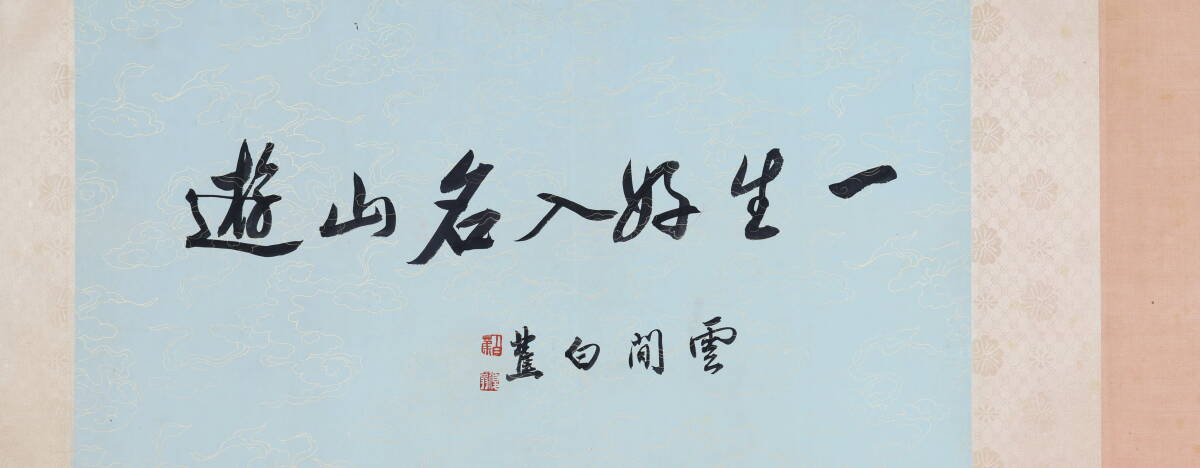 一生好入名山遊
雲間白蕉